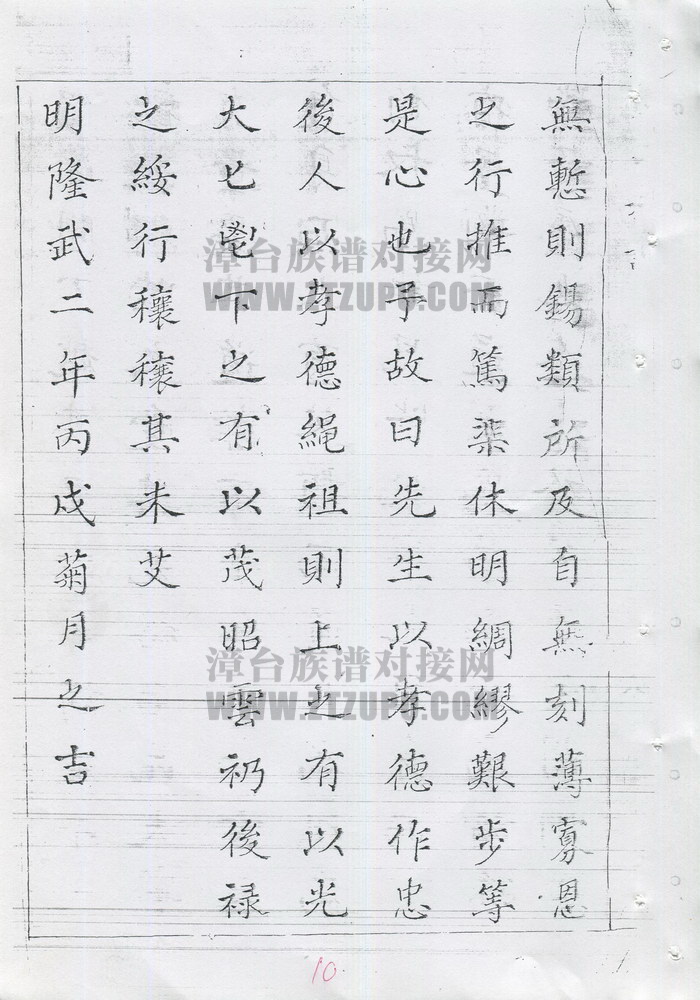 無慙則錫類所及自無刻薄寡恩
之行推而篤渠休明綢繆艱步等
是心也予故曰先生以孝德作忠
後人以孝德繩祖則上之有以光
大匕鬯下之有以茂昭雲礽後禄
之綏行穰穰其未艾
明隆武二年丙戌菊月之吉
漳台族谱对接网
WWW.ZTZUPU.COM
漳台族谱对接网
WWW.ZTZUPU.COM
10